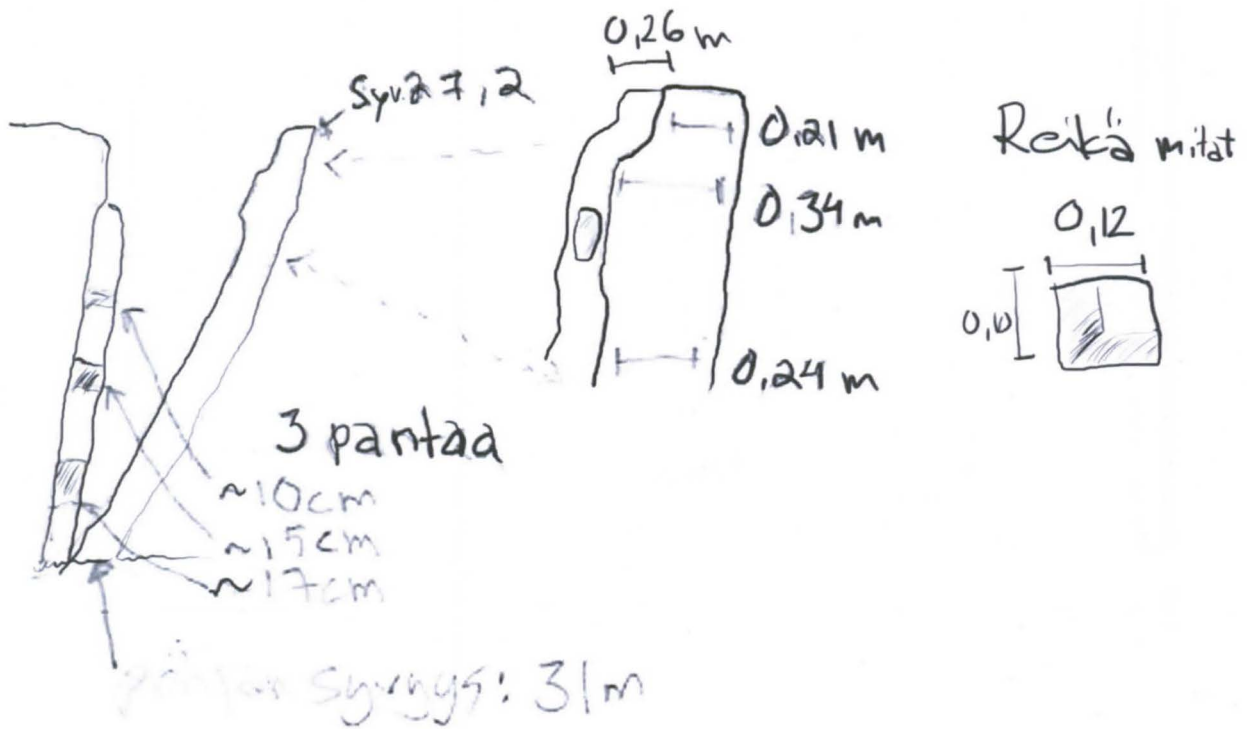 0,26 m
Syv. 27,2
0,21 m
0,34 m
0,24 m
Reikä mitat
0,12
3 pantaa
~10cm
~15cm
~17cm
syvyys: 31m